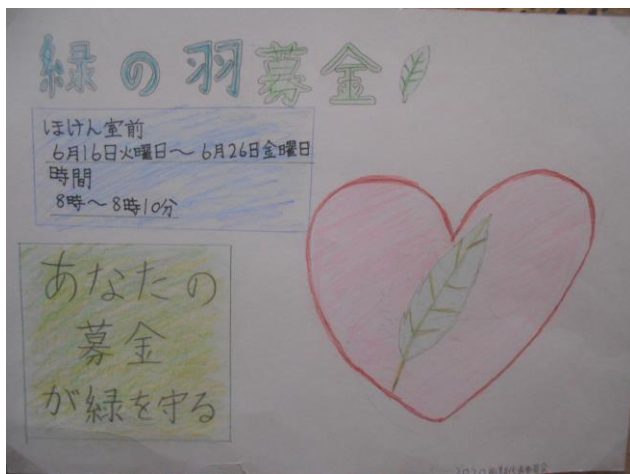 緑の羽募金
ほけん室前
6月16日火曜日～6月26日金曜日
時間
8時～8時10分
あなたの
募金
が緑を守る